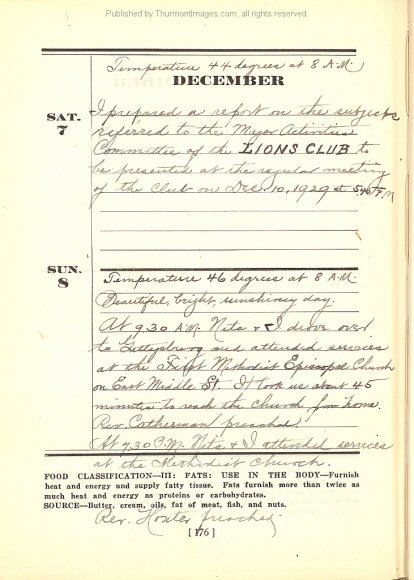 Published by ThurmontImages.com, all rights reserved.
Temperature 44 degrees at 8 A.M.
DECEMBER
SAT.
7
I prepared a report on the subjects
referred to the Major Activities
Committee of the LIONS CLUB to
be presented at the regular meeting
of the Club on Dec. 10, 1929 at P.M
SUN.
8
Temperature 46 degrees at 8 A.M.
Beautiful, bright, sunshiney day.
At 9.30 A.M. Nita & I drove over
to Gettysburg and attended services
at the First Methodist Episcopal Church
on East Middle St. It took us about 45
minutes to reach the Church from home.
Rev. Catherman preached.
At 7.30 P.M. Nita & I attended services
at the Methodist Church.
FOOD CLASSIFICATION—III: FATS: USE IN THE BODY—Furnish
heat and energy and supply fatty tissue. Fats furnish more than twice as
much heat and energy as proteins or carbohydrates.
SOURCE—Butter, cream, oils, fat of meat, fish, and nuts.
Rev. preached.
[176]